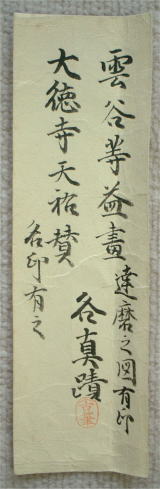 雲谷等益畫達磨之図有印
大徳寺天祐賛
各印有之
各真蹟